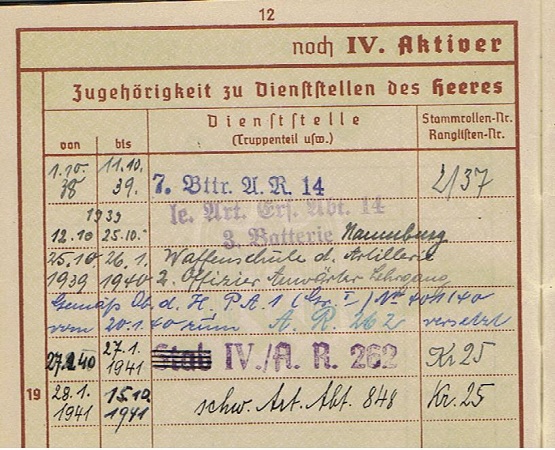 12
noch IV. Aktiver
Zugehörigkeit zu Dienststellen des Heeres
von bis Dienststelle (Truppenteil usw.) Stammrollen-Nr. Ranglisten-Nr.
1.10. 38 11.10. 39. 7. Bttr. A.R. 14 2/37
1939 le. Art. Ers. Abt. 14
12.10 25.10.- 3. Batterie Naumburg
25.10 26.1. Waffenschule d. Artillerie
1939 1940 2. Offizier Anwärter Lehrgang
Gemäß Ob. d. H. P.A. 1 (Gr. I) No 401/40
vom 20.1.40 zum A. R. 262 versetzt
27.1.40 27.1. 1941 Stab IV./A. R. 262 Kr 25
19 28.1. 1941 15.10 1941 schw. Art. Abt. 848 Kr. 25